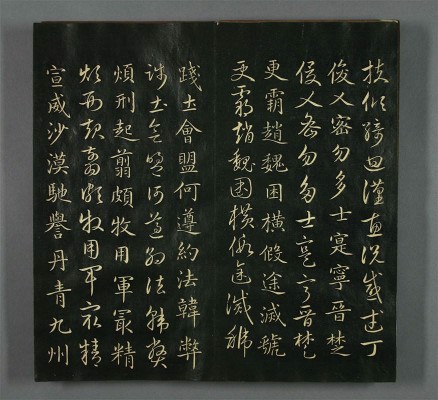 扶傾綺迴漢惠說感武丁
俊乂密勿多士寔寧晉楚
俊乂密勿多士寔寧晉楚
更霸趙魏困橫假途滅虢
更霸趙魏困橫假途滅虢
踐土會盟何遵約法韓弊
踐土會盟何遵約法韓弊
煩刑起翦頗牧用軍冣精
煩刑起翦頗牧用軍冣精
宣威沙漠馳譽丹青九州